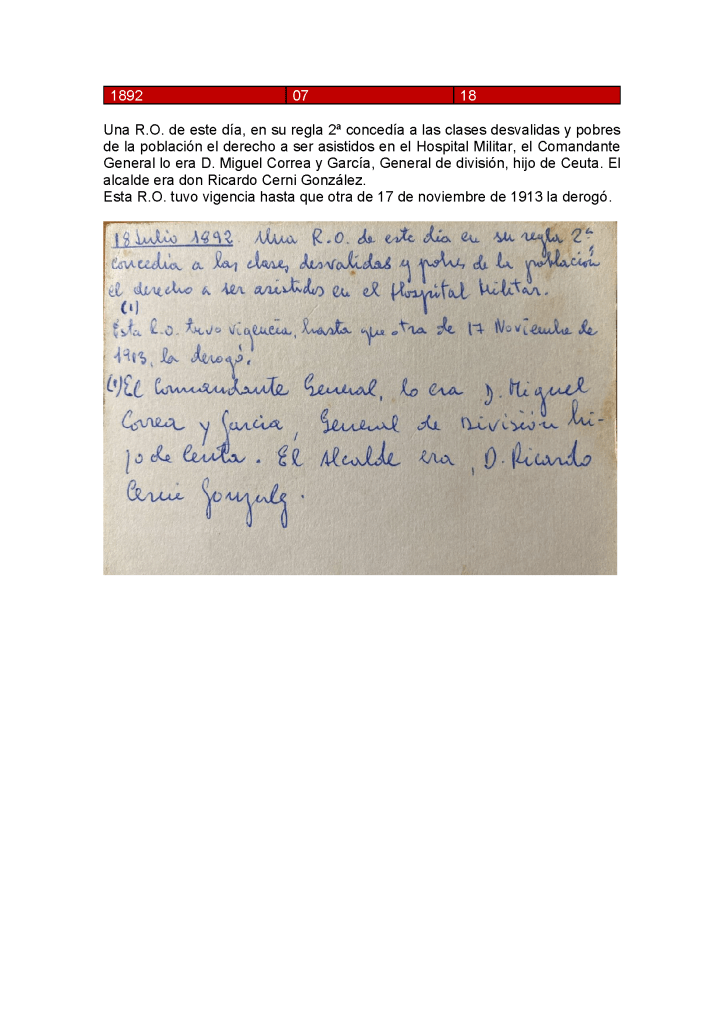 1892 07 18
Una R.O. de este día, en su regla 2ª concedía a las clases desvalidas y pobres
de la población el derecho a ser asistidos en el Hospital Militar, el Comandante
General lo era D. Miguel Correa y García, General de división, hijo de Ceuta. El
alcalde era don Ricardo Cerni González.
Esta R.O. tuvo vigencia hasta que otra de 17 de noviembre de 1913 la derogó.
18 Julio 1892. Una R.O. de este día en su regla 2ª
concedía a las clases desvalidas y pobres de la población
el derecho a ser asistidos en el Hospital Militar.
(1)
Esta R.O. tuvo vigencia, hasta que otra de 17 Noviembre de
1913, la derogó.
(1) El Comandante General, lo era D. Miguel
Correa y Garcia, General de División hi-
jo de Ceuta. El Alcalde era, D. Ricardo
Cerni Gonzalez.